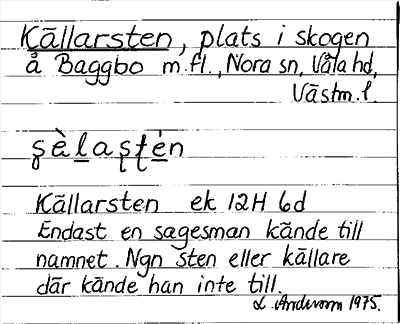 Källarsten, plats i skogen
å Baggbo m.fl., Nora sn, Våla hd,
Västm.l.
Källarsten ek 12H 6d
Endast en sagesman kände till
namnet. Ngn sten eller källare
där kände han inte till.
L. Andersson 1975.